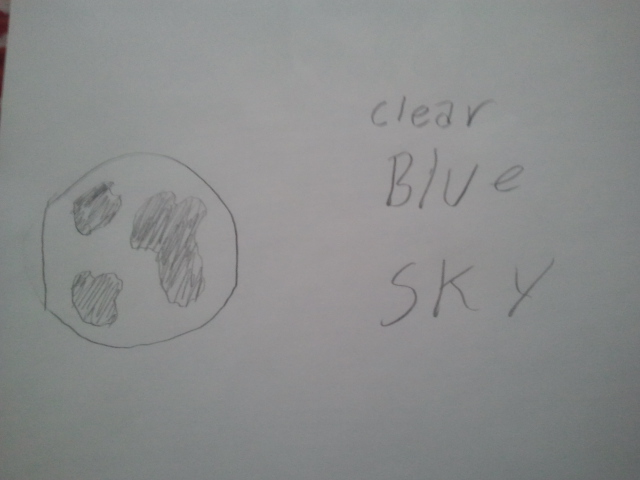 clear
Blue
SKY